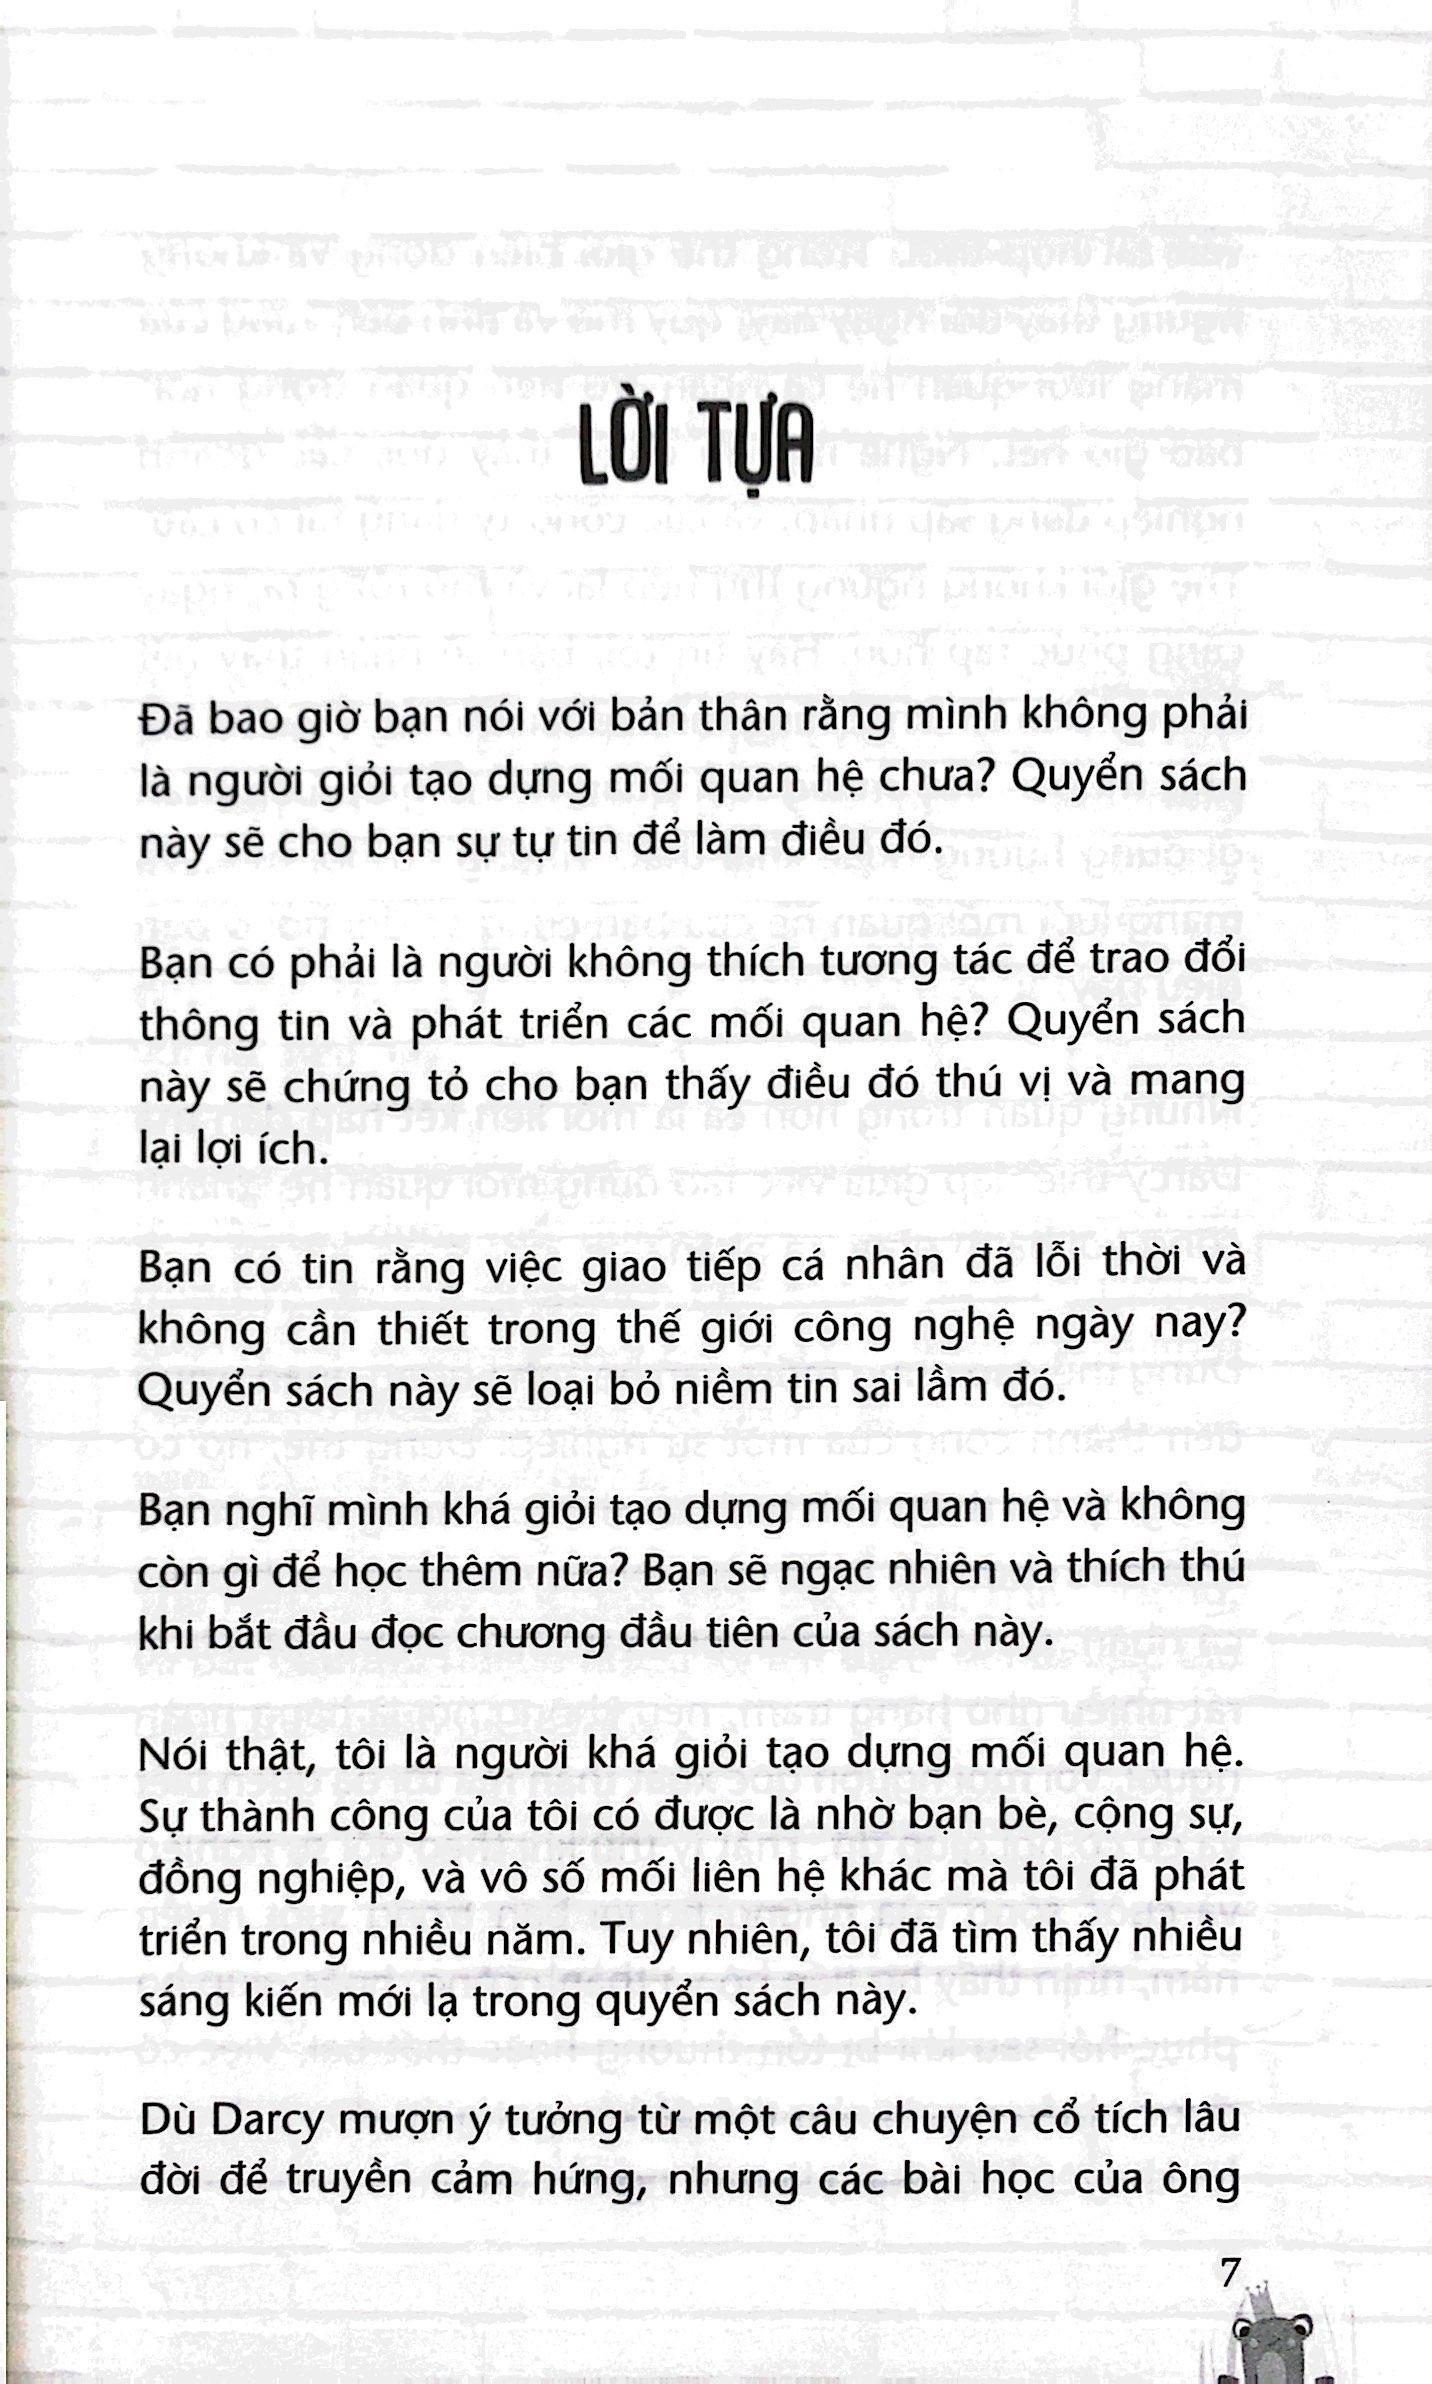 LỜI TỰA
Đã bao giờ bạn nói với bản thân rằng mình không phải
là người giỏi tạo dựng mối quan hệ chưa? Quyển sách
này sẽ cho bạn sự tự tin để làm điều đó.
Bạn có phải là người không thích tương tác để trao đổi
thông tin và phát triển các mối quan hệ? Quyển sách
này sẽ chứng tỏ cho bạn thấy điều đó thú vị và mang
lại lợi ích.
Bạn có tin rằng việc giao tiếp cá nhân đã lỗi thời và
không cần thiết trong thế giới công nghệ ngày nay?
Quyển sách này sẽ loại bỏ niềm tin sai lầm đó.
Bạn nghĩ mình khá giỏi tạo dựng mối quan hệ và không
còn gì để học thêm nữa? Bạn sẽ ngạc nhiên và thích thú
khi bắt đầu đọc chương đầu tiên của sách này.
Nói thật, tôi là người khá giỏi tạo dựng mối quan hệ.
Sự thành công của tôi có được là nhờ bạn bè, cộng sự,
đồng nghiệp, và vô số mối liên hệ khác mà tôi đã phát
triển trong nhiều năm. Tuy nhiên, tôi đã tìm thấy nhiều
sáng kiến mới lạ trong quyển sách này.
Dù Darcy mượn ý tưởng từ một câu chuyện cổ tích lâu
đời để truyền cảm hứng, nhưng các bài học của ông
7